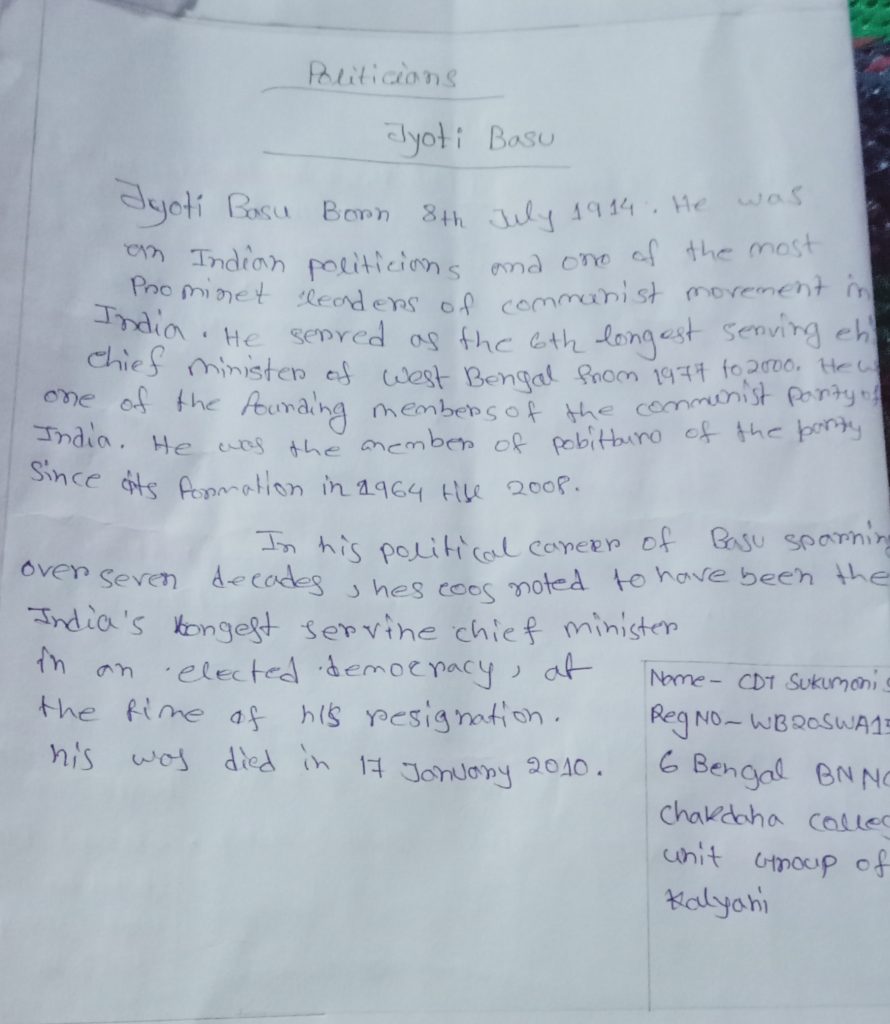 Politicians
Jyoti Basu
Jyoti Basu Born 8th July 1914. He was
an Indian politicians and one of the most
Prominet leaders of communist movement in
India. He served as the 6th longest serving
chief minister of West Bengal from 1977 to 2000. He
one of the founding members of the communist party of
India. He was the member of pobitburo of the party
Since its formation in 1964 till 2008.
In his political career of Basu spannin
over seven decades, hes was noted to have been the
India's longest servine chief minister
in an elected democracy, at
the time of his resignation.
his was died in 17 January 2010.
Name - CDT Sukumoni
Reg No - WB20SWA13
6 Bengal BN NC
Chakdaha colleg
unit Group of
Kalyani